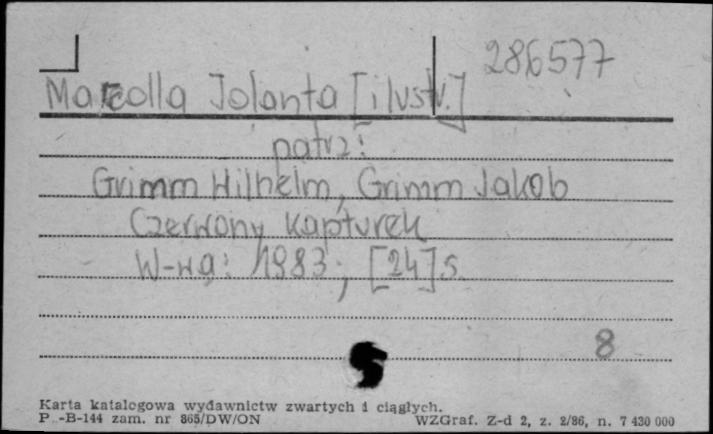 286577
Marcolla Jolanta [ilustr.]
patrz:
Grimm Wilhelm, Grimm Jakob
Czerwony Kapturek
W-wa: 1983; [24]s.
8
S
Karta katalogowa wydawnictw zwartych i ciągłych.
P -B-144 zam. nr 865/DW/ON
WZGraf. Z-d 2, z. 2/86, n. 7 430 000